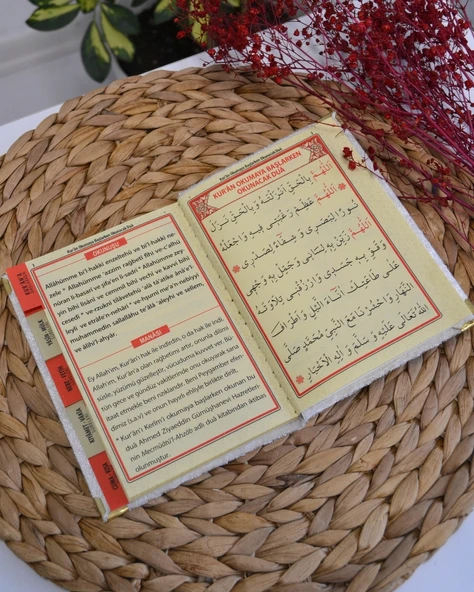 Kur'ân Okumaya Başlarken Okunacak Duâ
OKUNUŞU
Allâhümme bi'l-hakki enzeltehû ve bi'l-hakki
nezele * Allâhümme 'azzim rağbetî fîhi ve c'alhü
nûran li-basarî ve şifâ'en li-sadrî * Allâhümme zey-
yin bihî lisânî ve cemmil bihî vechî ve kavvi bihî
cesedî * ve'rzuknî tilâvetehû 'alâ tâ'atike ânâ'e'l-
leyli ve etrâfe'n-nehâri * ve'hşurnî me'a'n-nebiyyi
muhammedin sallallâhu te'âlâ 'aleyhi ve sellem,
ve âlihi'l-ahyâr.
MANASI
Ey Allah'ım, Kur'ân'ı hak ile indirdin, o da hak ile indi.
Allah'ım, Kur'ân'a olan rağbetimi artır, onunla dilimi
süsle, yüzümü güzelleştir, vücuduma kuvvet ver. Bü-
tün gece ve gündüz vakitlerinde onu okuyarak sana
itaat etmekle beni rızıklandır. Beni Peygamber efen-
dimiz (s.a.v) ve onun hayırlı ehliyle birlikte dirilt.
* Kur'ân-ı Kerîm'i okumaya başlarken okunan bu
duâ Ahmed Ziyaeddin Gümüşhanevi Hazretleri-
nin Mecmûâtü'l-Ahzâb adlı duâ kitabından iktibas
olunmuştur.
Kur'ân Okumaya Başlarken Okunacak Duâ
KUR'ÂN OKUMAYA BAŞLARKEN
OKUNACAK DUÂ
اَللّٰهُمَّ بِالْحَقِّ اَنْزَلْتَهُ وَبِالْحَقِّ نَزَلَ
اَللّٰهُمَّ عَظِّمْ رَغْبَتِى فِيهِ وَاجْعَلْهُ
نُورًا لِبَصَرِى وَ شِفَاءً لِصَدْرِى
اَللّٰهُمَّ زَيِّنْ بِهِ لِسَانِى وَجَمِّلْ بِهِ وَجْهِى
وَقَوِّ بِهِ جَسَدِى وَارْزُقْنِى تِلَاوَتَهُ
عَلٰى طَاعَتِكَ اٰنَاءَ الَّيْلِ وَاَطْرَافَ
النَّهَارِ وَاحْشُرْنَا مَعَ النَّبِيِّ مُحَمَّدٍ صَلَّى
اللّٰهُ تَعَالٰى عَلَيْهِ وَسَلَّمَ وَ اٰلِهِ الْاَخْيَارِ